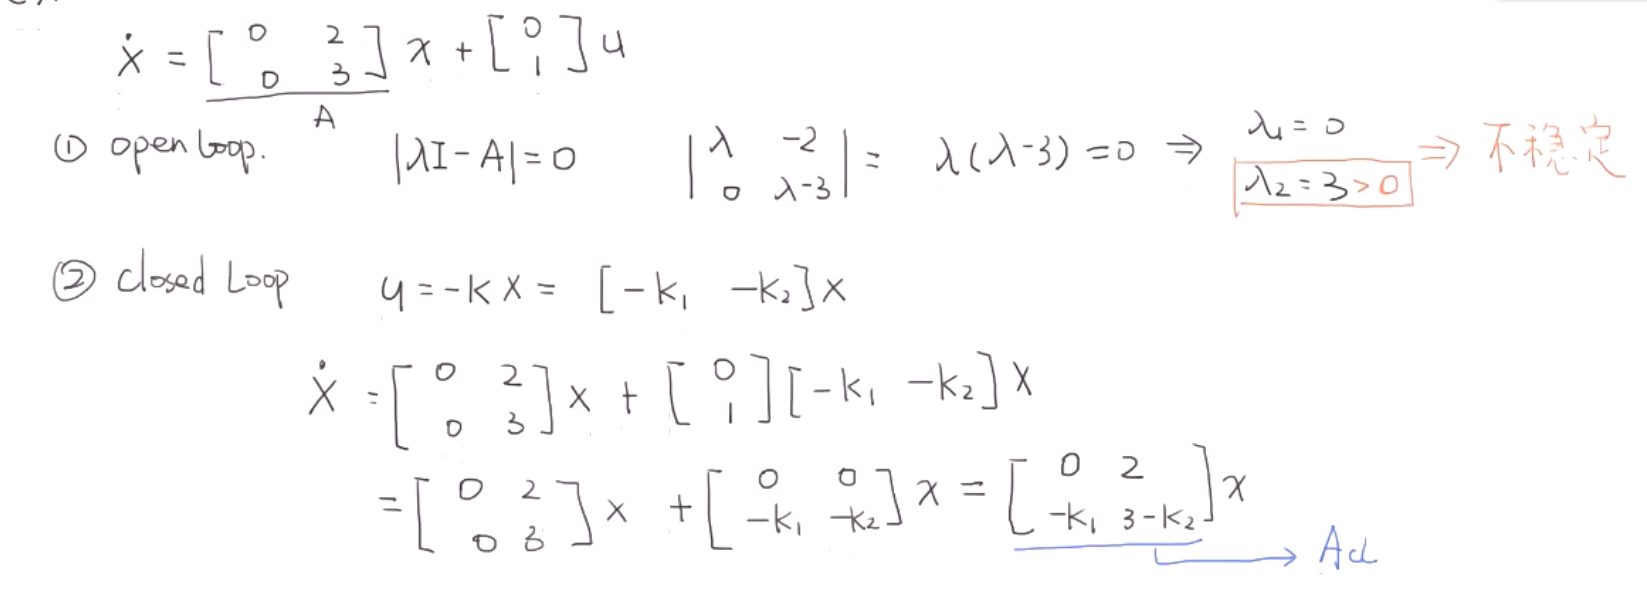 ẋ = [0 2; 0 3] x + [0; 1] u
A
① open loop. |λI-A|=0 |λ -2; 0 λ-3| = λ(λ-3)=0 ⇒ λ₁=0 λ₂=3>0 ⇒ 不稳定
② closed Loop u=-kx= [-k₁ -k₂]x
ẋ = [0 2; 0 3] x + [0; 1] [-k₁ -k₂] x
= [0 2; 0 3] x + [0 0; -k₁ -k₂] x = [0 2; -k₁ 3-k₂] x
→ Acl